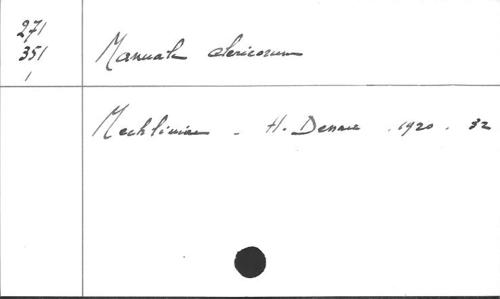 271
351
1
Manuale clericorum
Mechliniae - H. Dessain . 1920 . 32